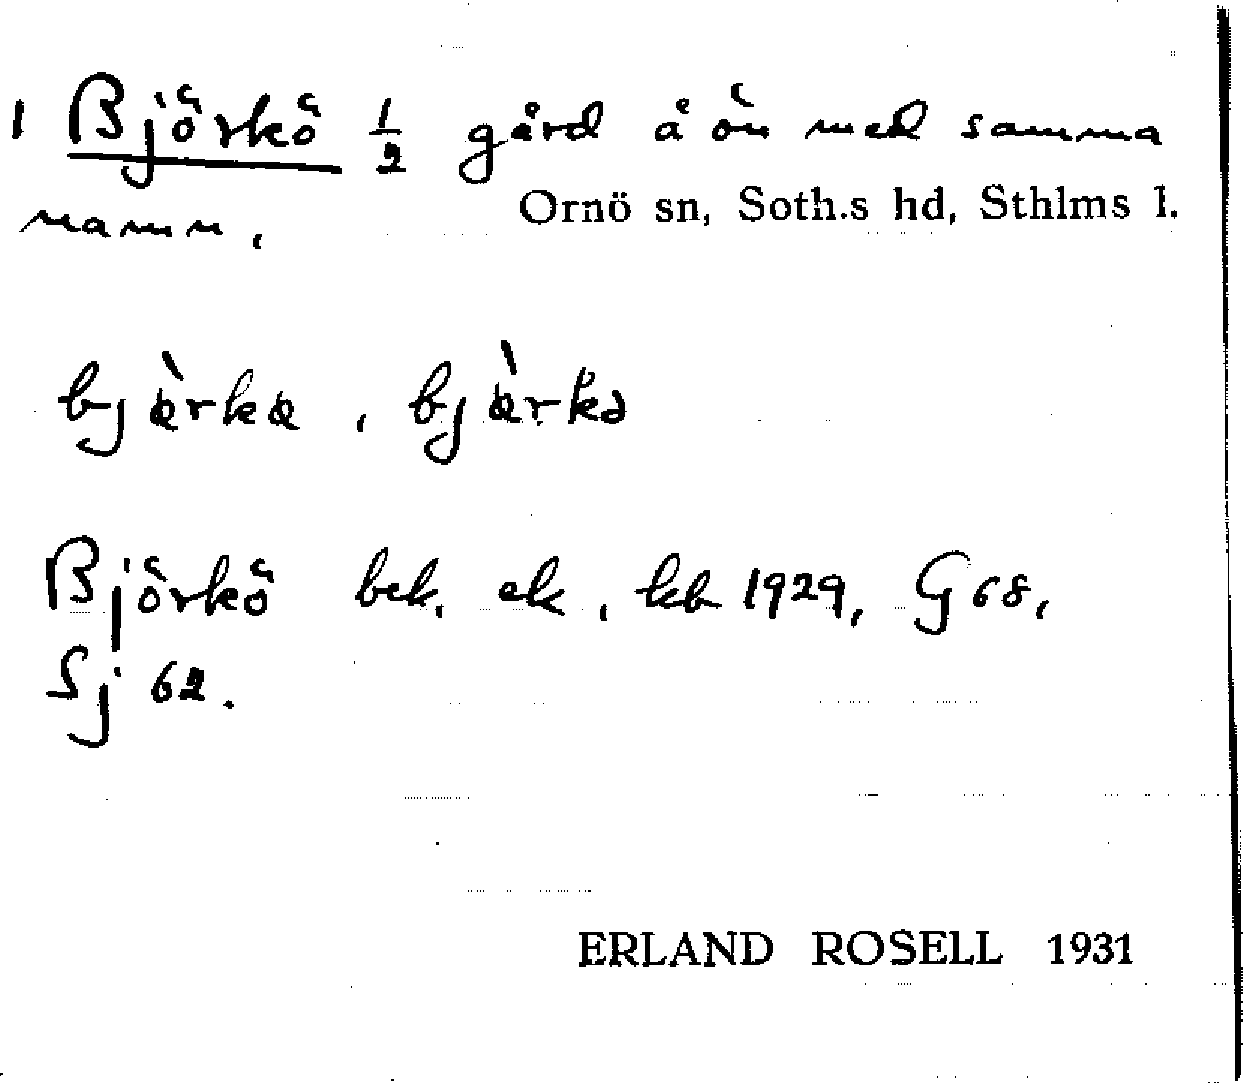 1 Björkö ½ gård å ön med samma
Ornö sn, Soth.s hd, Sthlms l.
namn.
bjὰrkα, bjὰrkə
Björkö bek. ek, kb 1929, G 68,
Sj 62.
ERLAND ROSELL 1931